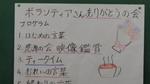 ボランティアさんありがとうの会
プログラム
1. はじめの言葉
2. 感謝の会 映像鑑賞
3. ティータイム
4. お礼の言葉